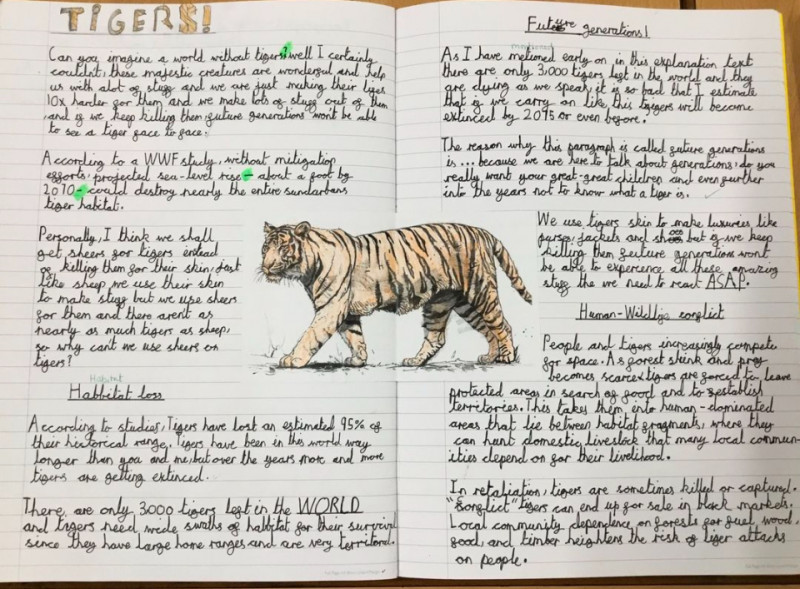 TIGERS!
Can you imagine a world without tigers? well I certainly
couldn't, these majestic creatures are wonderful and help
us with alot of stuff and we are just making their lifes
10x harder for them and we make lots of stuff out of them
and if we keep killing them future generations won't be able
to see a tiger face to face.
According to a WWF study, without mitigation
efforts, projected sea-level rise - about a foot by
2070 - could destroy nearly the entire sundarbans
tiger habitat.
Personally, I think we shall
get sheers for tigers instead
of killing them for their skin, just
like sheep we use their skin
to make stuff but we use sheers
for them and there aren't as
nearly as much tigers as sheep,
so why can't we use sheers on
tigers?
Habitat
Habbitat loss
According to studies, Tigers have lost an estimated 95% of
their historical range. Tigers have been in this world way
longer than you and me, but over the years more and more
tigers are getting extinced.
There are only 3000 tigers left in the WORLD
and tigers need wide swaths of habbitat for their survival
since they have large home ranges and are very territoral.
Future generations!
mentioned
As I have metioned early on, in this explanation text
there are only 3,000 tigers left in the world and they
are dying as we speak, it is so bad that I estimate
that if we carry on like this tigers will become
extinced by 2095 or even before.
The reason why this paragraph is called future generations
is ... because we are here to talk about generations, do you
really want your great-great children and even further
into the years not to know what a tiger is.
We use tigers skin to make luxuries like
purses, jackets and but if we keep
killing them future generations won't
be able to experience all these amazing
stuff the we need to react ASAP.
Human-Wildlife conflict
People and tigers increasingly compete
for space. As forest shink and prey
becomes scarce tigers are forced to leave
protected areas in search of food and to establish
territories. This takes them into human-dominated
areas that lie between habitat fragments, where they
can hunt domestic livestock that many local commun-
ities depend on for their livelihood.
In retaliation, tigers are sometimes killed or captured.
"Conflict" tigers can end up for sale in black markets.
Local community dependence on forests for fuel, wood,
food, and timber heightens the risk of tiger attacks
on people.